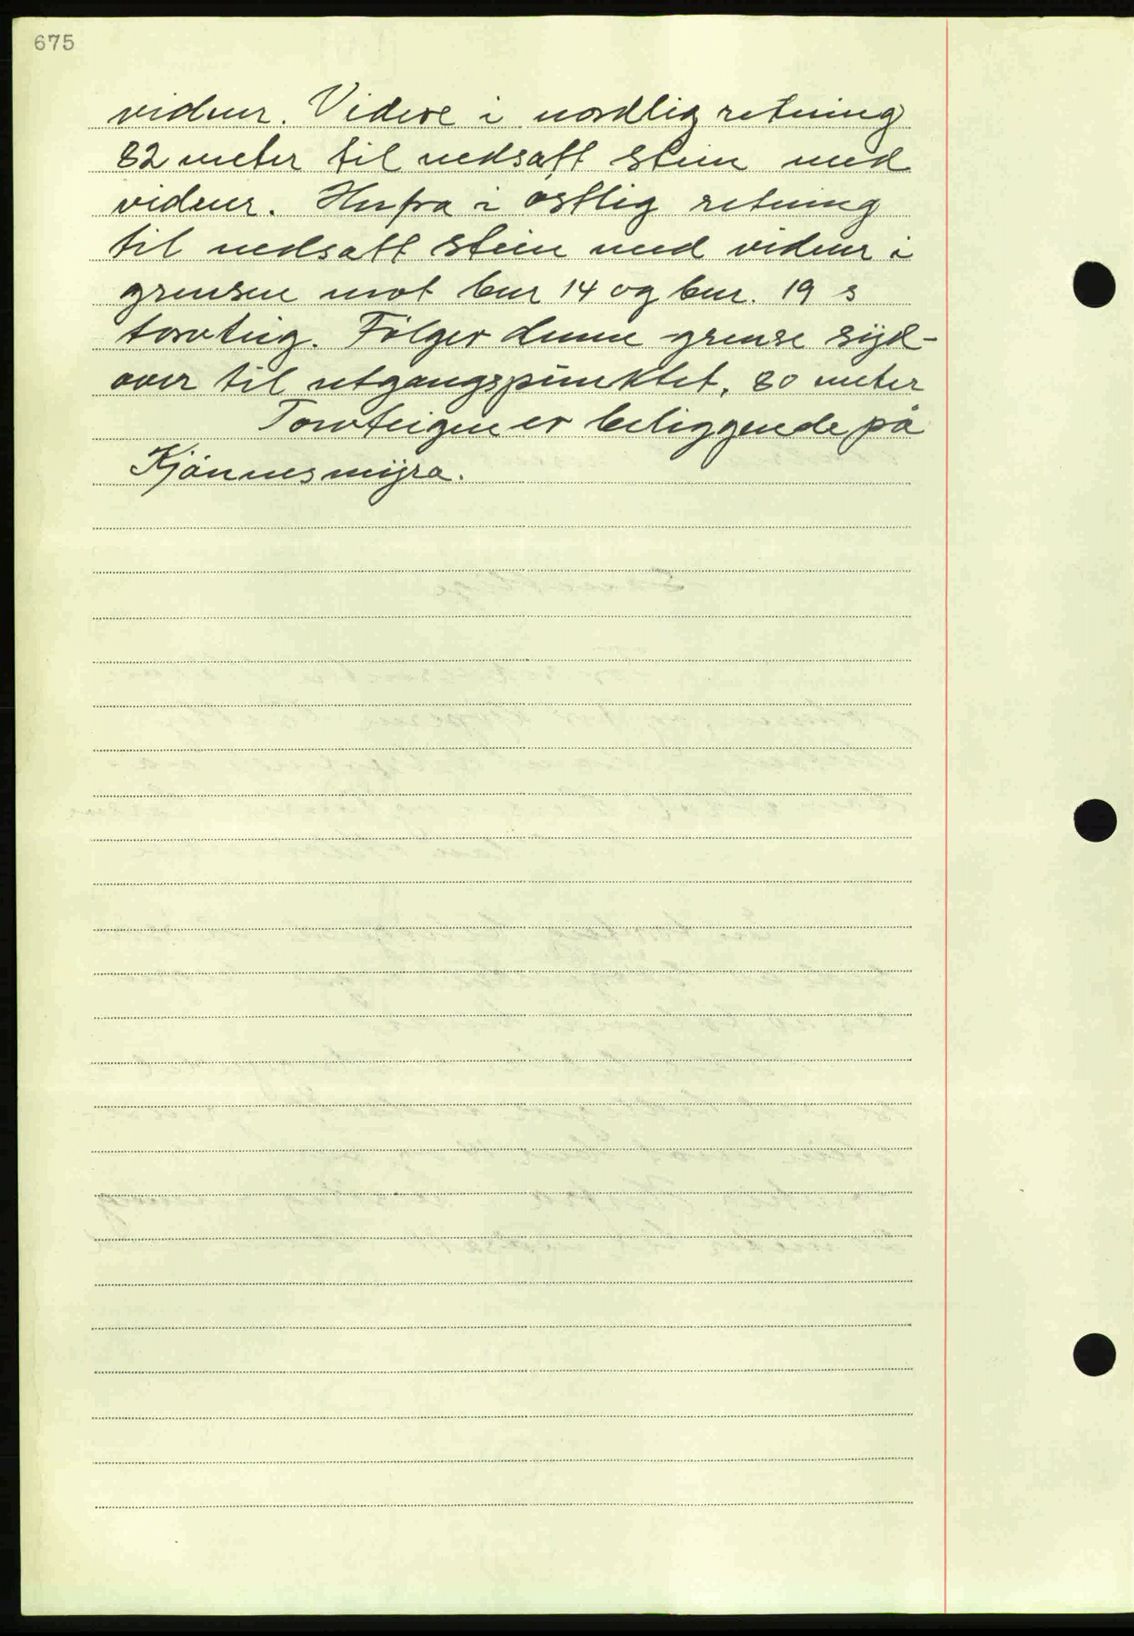 675
vidner. Videre i nordlig retning
82 meter til nedsatt stein med
vidner. Herfra i østlig retning
til nedsatt stein med vidner i
grensen mot bnr 14 og bnr. 19 s
torvteig. Følger denne grense syd-
over til utgangspunktet, 80 meter
Torvteigen er beliggende på
Kjønnesmyra.